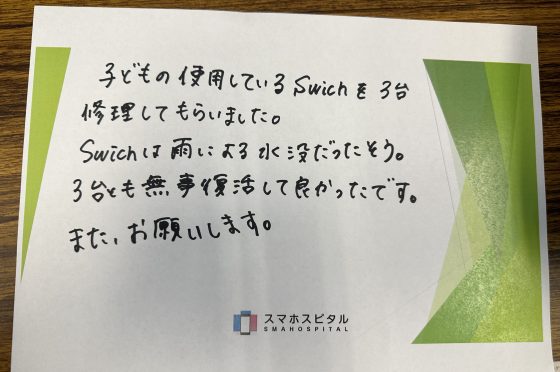 子どもの使用しているSwichを3台
修理してもらいました。
Swichは雨による水没だったそう。
3台とも無事復活して良かったです。
また、お願いします。
スマホスピタル
SMAHOSPITAL